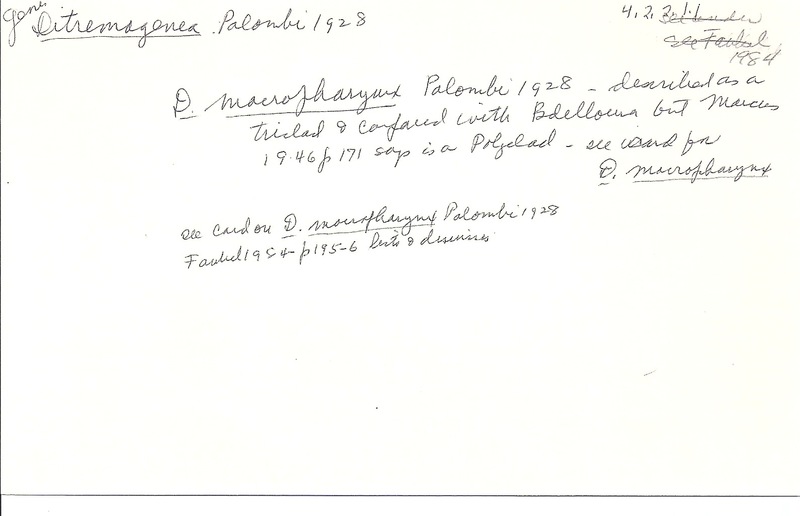 genus
Ditremagenea Palombi 1928
4.2.2.1.1
see Faubel
1984
D. macropharynx Palombi 1928 - described as a
triclad & compared with Bdelloura but Marcus
1946 p 171 says is a Polyclad - see card for
D. macropharynx
see card on D. macropharynx Palombi 1928
Faubel 1984 - p 195-6 lists & discusses